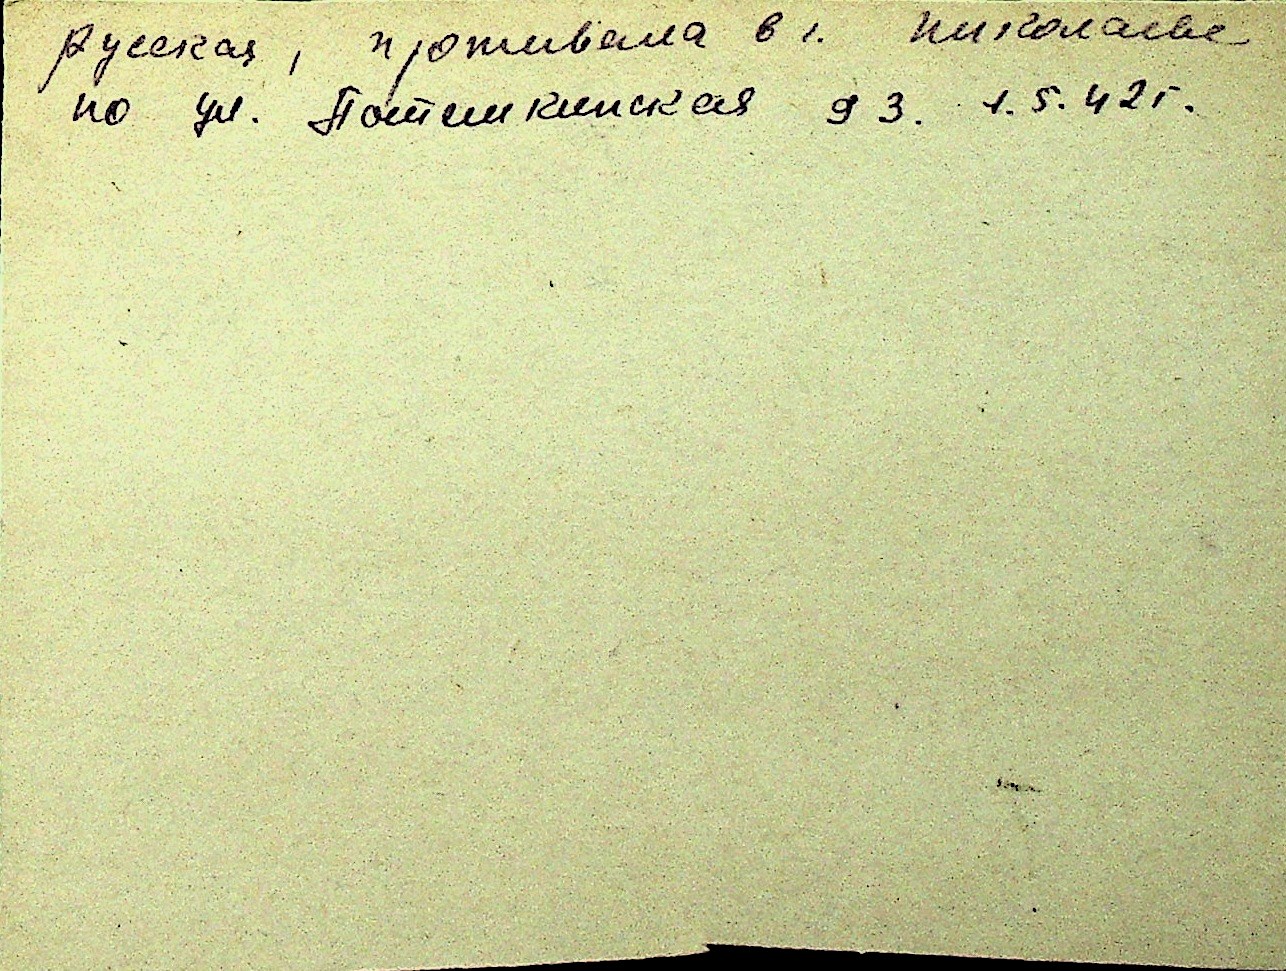 русская, проживала в г. Николаеве
по ул. Потемкинская 93. 1.5.42г.